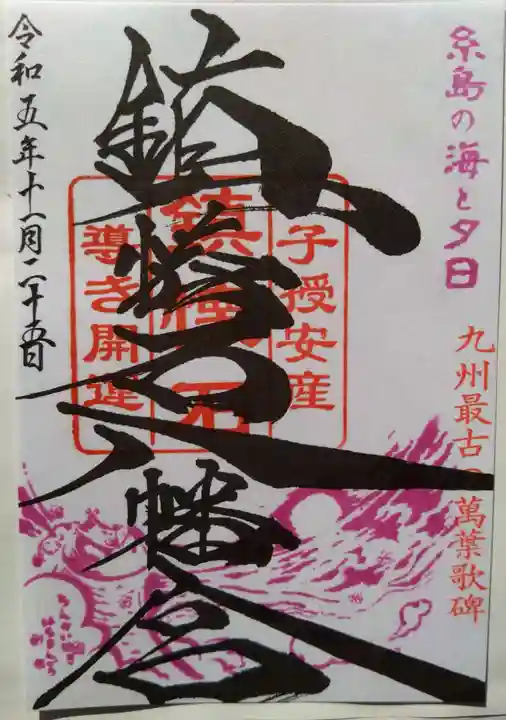 糸島の海と夕日
九州最古の萬葉歌碑
子授安産
鎮懐石
導き開運
鎮懐石八幡宮
令和五年十一月二十五日